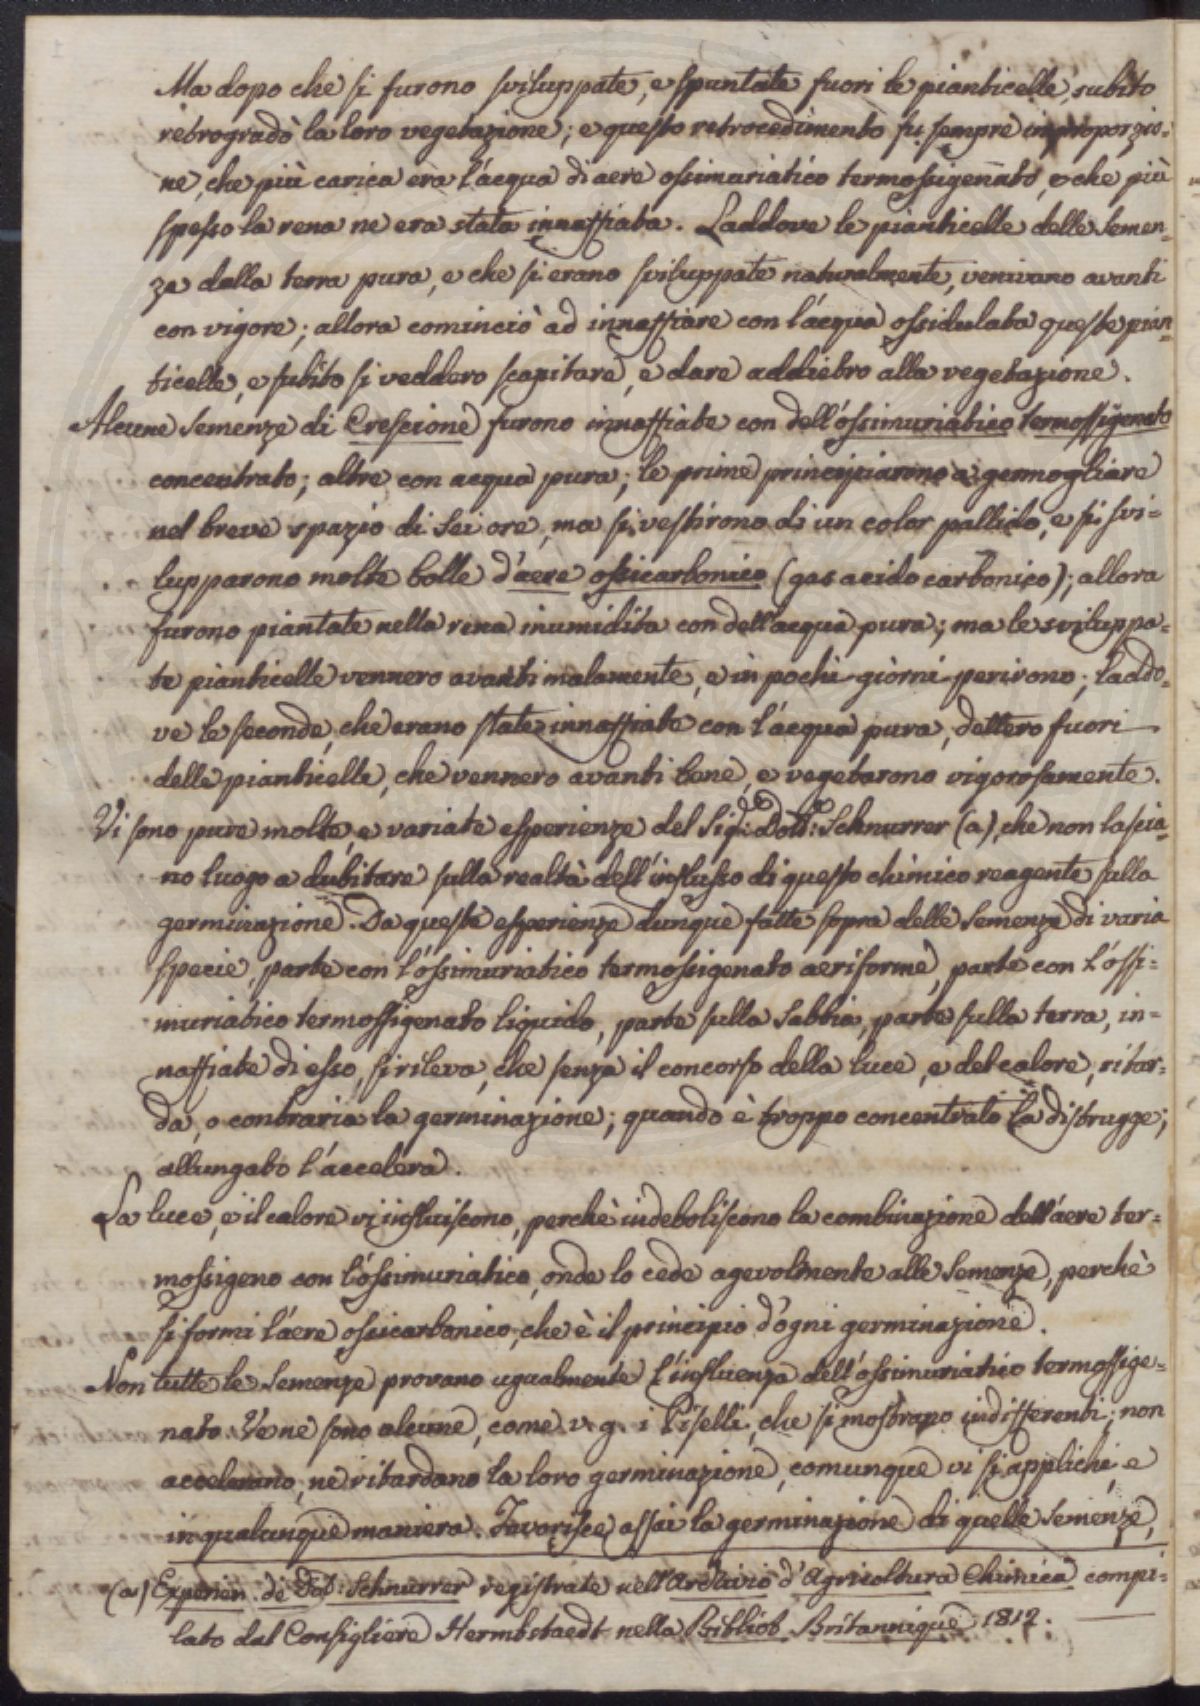 Ma dopo che si furono sviluppate, e spuntate fuori le pianticelle, subito
retrogradò la loro vegetazione; e questo retrocedimento fu sempre in proporzio=
ne, che più carica era l'acqua di aere ossimuriatico termossigenato, e che più
spesso la rena ne era stata innaffiata. Laddove le pianticelle delle semen=
ze dalla terra pura, e che si erano sviluppate naturalmente, venivano avanti
con vigore; allora cominciò ad innaffiare con l'acqua ossidulata queste pian=
ticelle, e subito si veddero scapitare, e dare addietro alla vegetazione.
Alcune semenze di Crescione furono innaffiate con dell'ossimuriatico termossigenato
concentrato; altre con acqua pura; le prime principiarono a germogliare
nel breve spazio di sei ore, ma si vestirono di un color pallido, e si svi=
lupparono molte bolle d'aere ossicarbonico (gas acido carbonico); allora
furono piantate nella rena inumidita con dell'acqua pura; ma le sviluppa=
te pianticelle vennero avanti malamente, e in pochi giorni perirono; laddo=
ve le seconde, che erano state innaffiate con l'acqua pura, dettero fuori
delle pianticelle, che vennero avanti bene, e vegetarono vigorosamente.
Vi sono pure molte, e variate esperienze del Sig:r Dott:r Schnurrer (a), che non lascia=
no luogo a dubitare sulla realtà dell'influsso di questo chimico reagente sulla
germinazione. Da queste esperienze dunque fatte sopra delle semenze di varia
specie, parte con l'ossimuriatico termossigenato aeriforme, parte con l'ossi=
muriatico termossigenato liquido, parte sulla sabbia, parte sulla terra, in=
naffiate di esso, si rileva, che senza il concorso della luce, e del calore, ritar=
da, o contraria la germinazione; quando è troppo concentrato la distrugge;
allungato l'accelera.
La luce, e il calore vi influiscono, perchè indeboliscono la combinazione dell'aere ter=
mossigeno con l'ossimuriatico, onde lo cede agevolmente alle semenze, perchè
si formi l'aere ossicarbonico, che è il principio d'ogni germinazione.
Non tutte le semenze provano ugualmente l'influenza dell'ossimuriatico termossige=
nato. Ve ne sono alcune, come v. g. i Piselli, che si mostrano indifferenti; non
accelerano, nè ritardano la loro germinazione, comunque vi si applichi, e
in qualunque maniera. Favorisce assai la germinazione di quelle semenze,
(a) Experien. de Dot: Schnurrer registrate nell'Archivio d'Agricoltura Chimica compi=
lato dal Consigliere Hermbstaedt nella Bibliot. Britannique 1812.